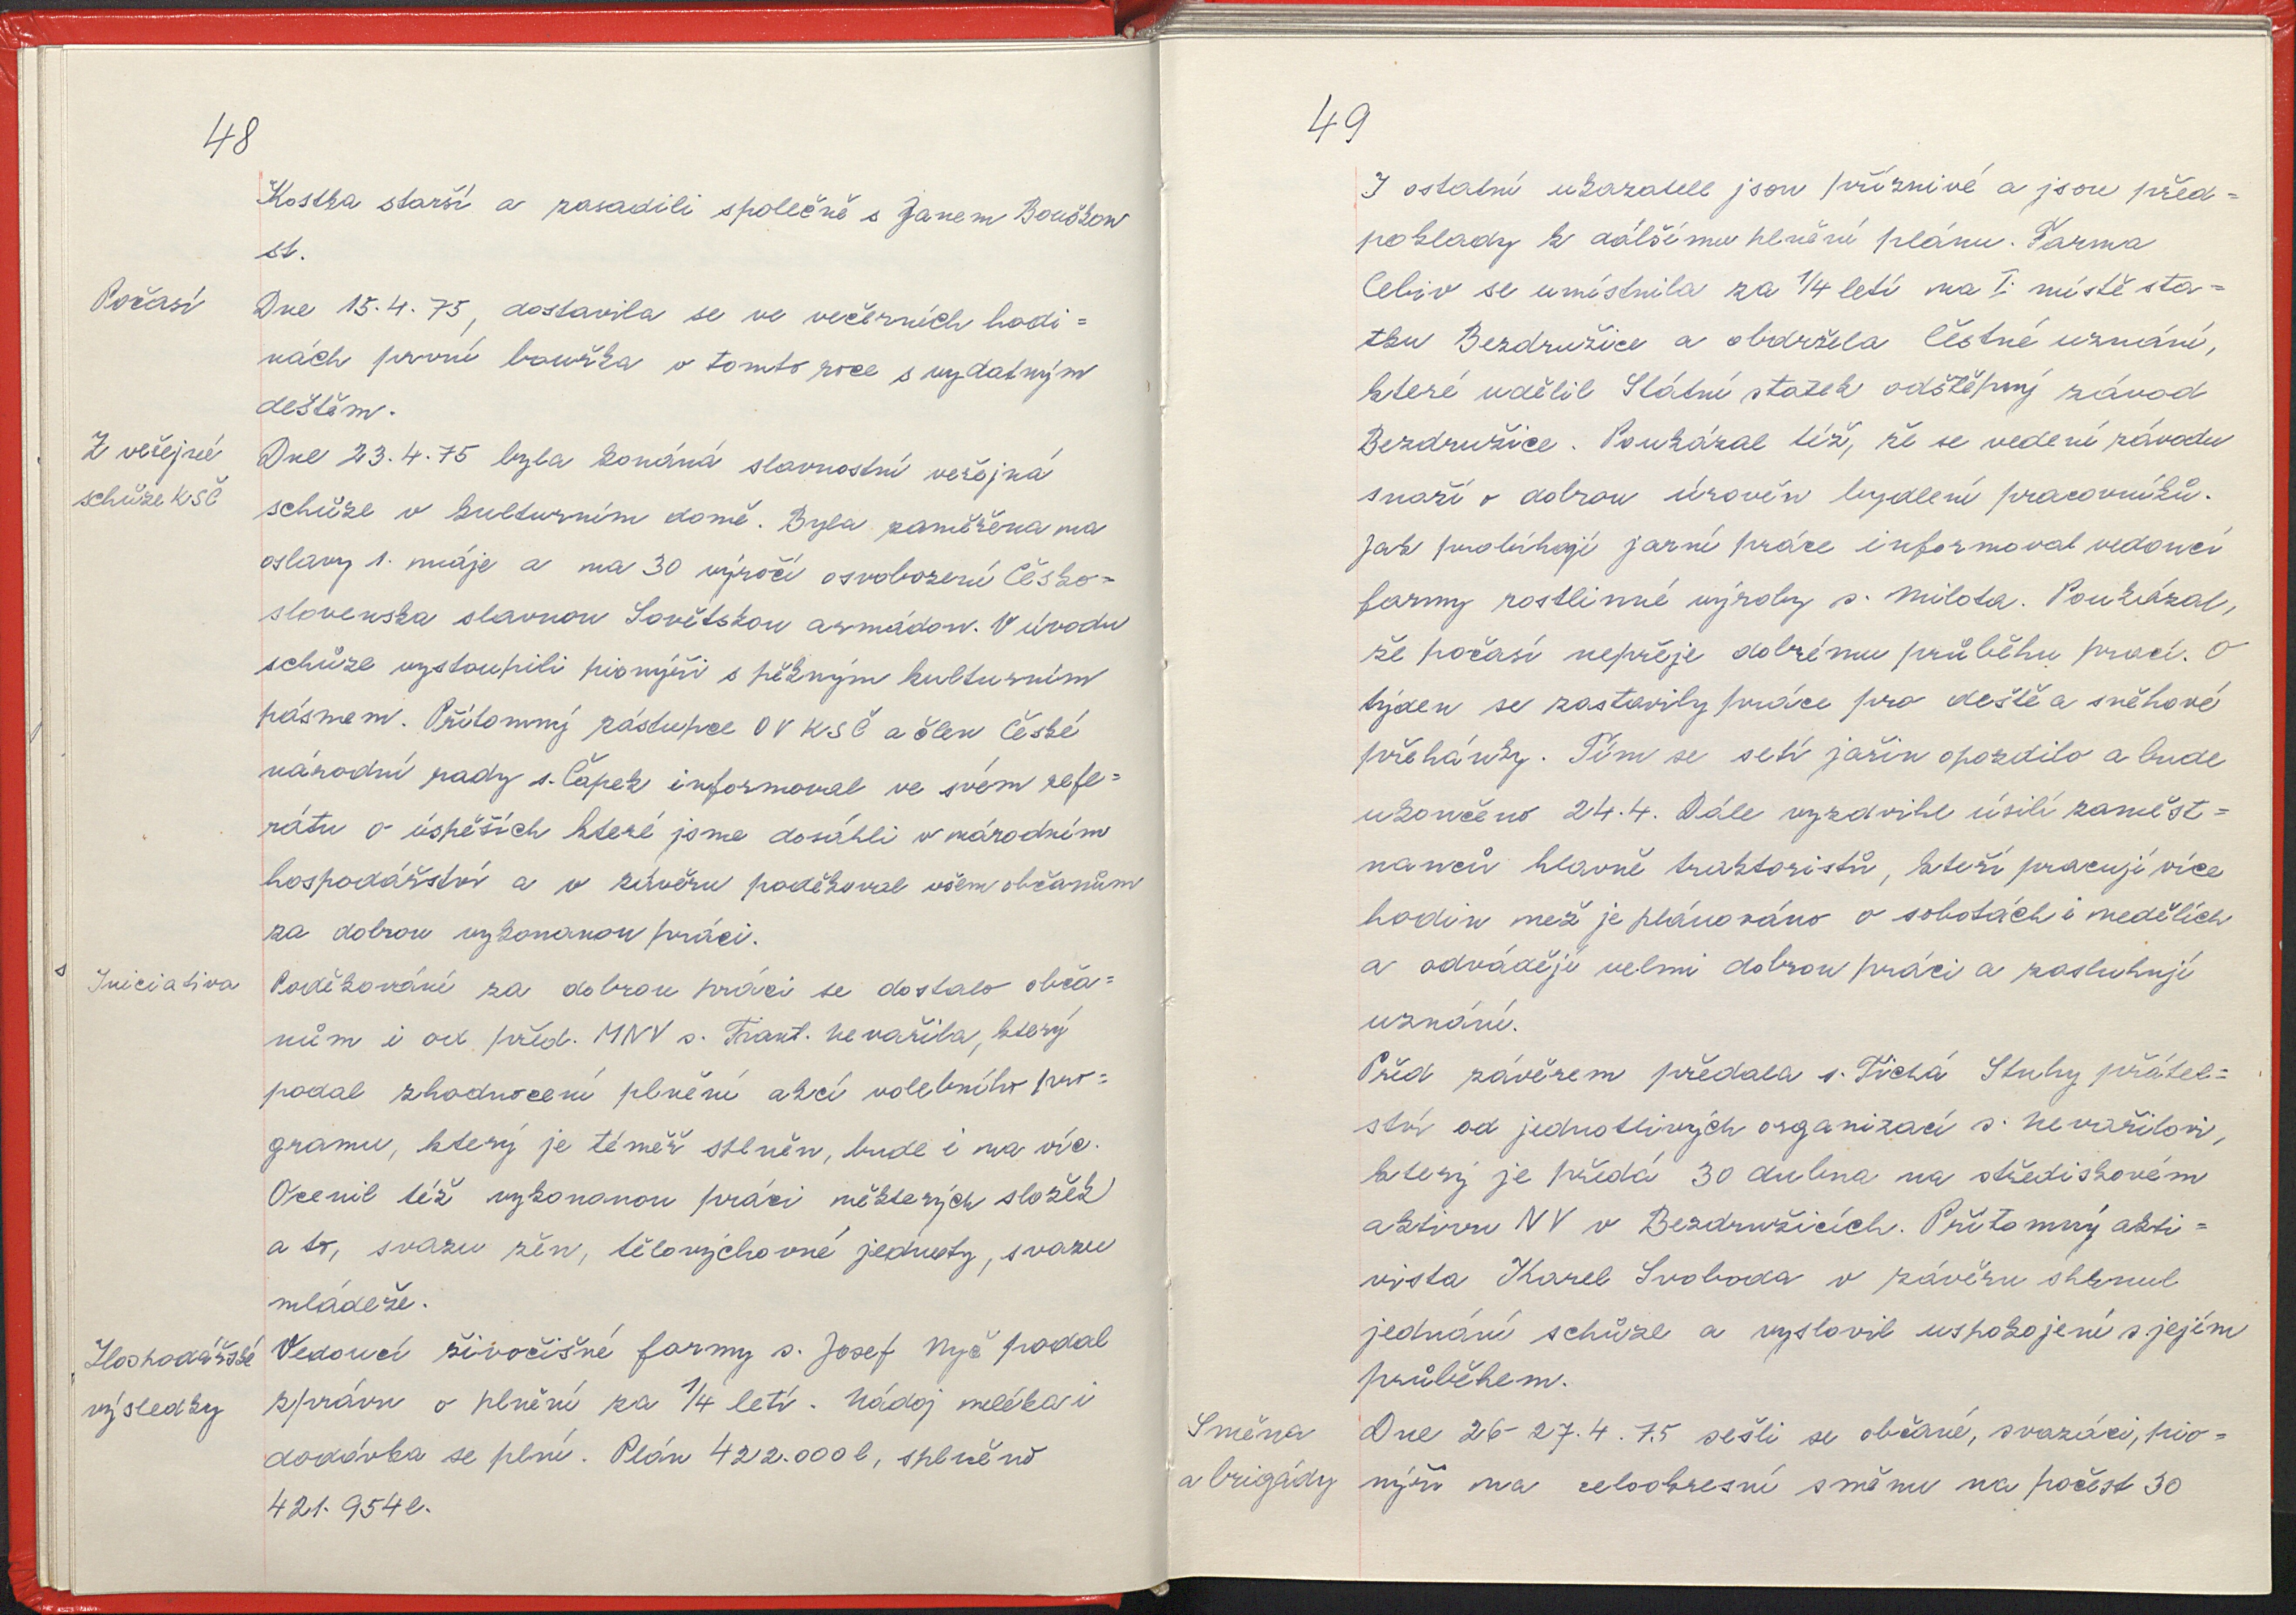 48
Kostka starší a zasadili společně s Janem Bouškou
st.
Počasí
Dne 15.4.75, dostavila se ve večerních hodi=
nách první bouřka v tomto roce s vydatným
deštěm.
Z veřejné
schůze KSČ
Dne 23.4.75 byla konána slavnostní veřejná
schůze v kulturním domě. Byla zaměřena na
oslavy 1. máje a na 30 výročí osvobození Česko=
slovenska slavnou Sovětskou armádou. V úvodu
schůze vystoupili pionýři s pěkným kulturním
pásmem. Přítomný zástupce OV KSČ a člen České
národní rady s. Čapek informoval ve svém refe=
rátu o úspěších které jsme dosáhli v národním
hospodářství a v závěru poděkoval všem občanům
za dobrou vykonanou práci.
Iniciativa
Poděkování za dobrou práci se dostalo obča=
nům i od před. MNV s. Frant. Nevařila, který
podal zhodnocení plnění akcí volebního pro=
gramu, který je téměř splněn, bude i na víc.
Ocenil též vykonanou práci některých složek
a to, svazu žen, tělovýchovné jednoty, svazu
mládeže.
Hospodářské
výsledky
Vedoucí živočišné farmy s. Josef Nyč podal
zprávu o plnění za 1/4 letí. Nádoj mléka i
dodávka se plní. Plán 422.000 l, splněno
421.954 l.
49
I ostatní ukazatele jsou příznivé a jsou před=
poklady k dálšímu plnění plánu. Farma
Cebiv se umístnila za 1/4 letí na I. místě sta=
tku Bezdružice a obdržela Čestné uznání,
které udělil Státní statek odštěpný závod
Bezdružice. Poukázal též, že se vedení závodu
snaží o dobrou úroveň bydlení pracovníků.
Jak probíhají jarní práce informoval vedoucí
farmy rostlinné výroby s. Milota. Poukázal,
že počasí nepřeje dobrému průběhu prací. O
týden se zastavily práce pro deště a sněhové
přehánky. Tím se setí jařin opozdilo a bude
ukončeno 24.4. Dále vyzdvihl úsilí zaměst=
nanců hlavně traktoristů, kteří pracují více
hodin než je plánováno o sobotách i nedělích
a odvádějí velmi dobrou práci a zasluhují
uznání.
Před závěrem předala s. Tichá Stuhy přátel=
ství od jednotlivých organizací s. Nevařilovi,
který je předá 30 dubna na střediskovém
aktivu NV v Bezdružicích. Přítomný akti=
vista Karel Svoboda v závěru shrnul
jednání schůze a vyslovil uspokojení s jejím
průběhem.
Směna
a brigády
Dne 26-27.4.75 sešli se občané, svazáci, pio=
nýři na celookresní směnu na počest 30